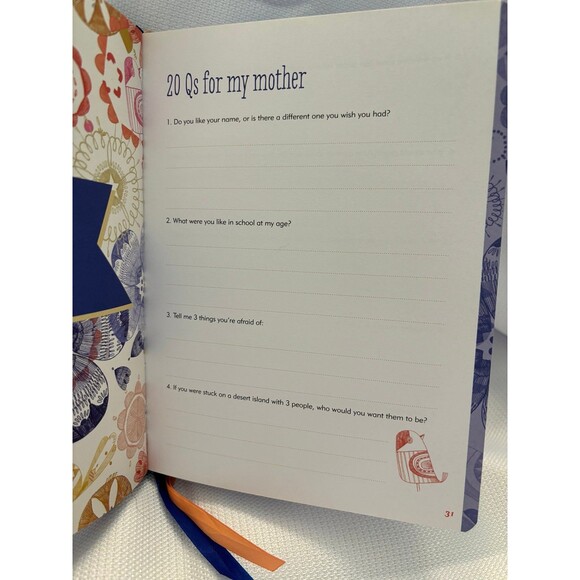 20 Qs for my mother
1. Do you like your name, or is there a different one you wish you had?
2. What were you like in school at my age?
3. Tell me 3 things you're afraid of:
4. If you were stuck on a desert island with 3 people, who would you want them to be?
31